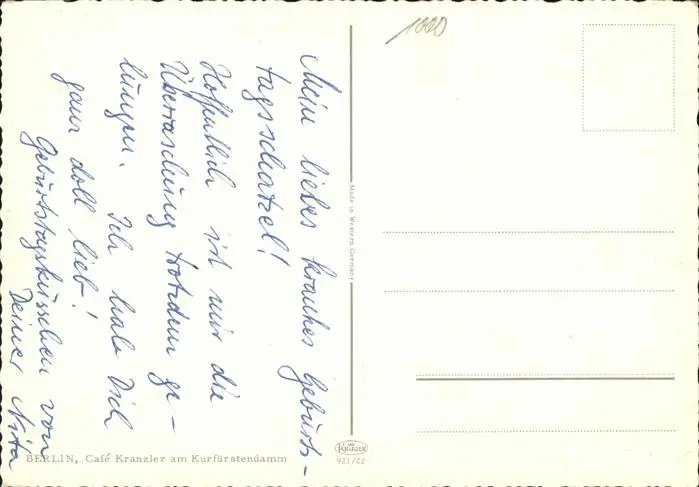 Mein liebes krankes Geburts-
tagsschatzel!
Hoffentlich ist mir die
Überraschung trotzdem ge-
lungen. Ich habe Dich
ganz doll lieb!
Geburtstagsküsschen von
Deiner Nita
1000
Made in Western Germany
Krüger
921/22
BERLIN, Café Kranzler am Kurfürstendamm